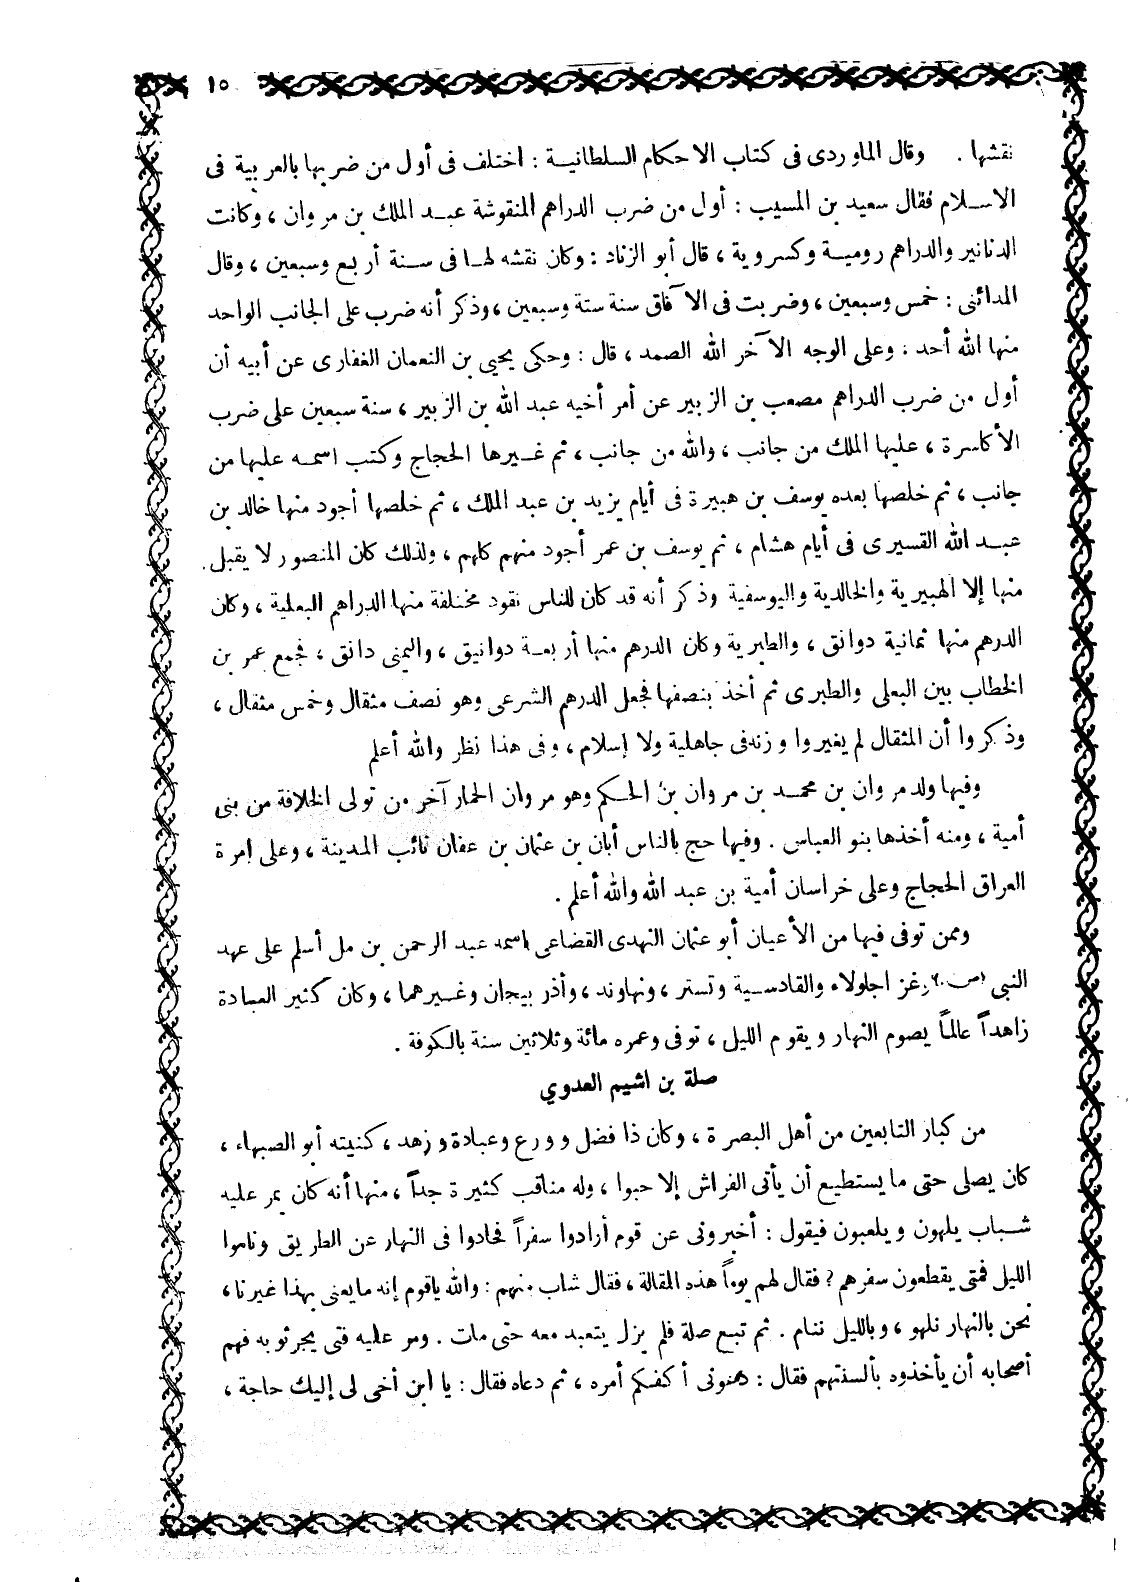 ١٥
نقشها . وقال الماوردى فى كتاب الاحكام السلطانية : اختلف فى أول من ضربها بالعربية فى
الاسلام فقال سعيد بن المسيب : أول من ضرب الدراهم المنقوشة عبد الملك بن مروان ، وكانت
الدنانير والدراهم رومية وكسروية ، قال أبو الزناد : وكان نقشه لها فى سنة أربع وسبعين ، وقال
المدائنى : خمس وسبعين ، وضربت فى الآفاق سنة ستة وسبعين ، وذكر أنه ضرب على الجانب الواحد
منها الله أحد . وعلى الوجه الآخر الله الصمد ، قال : وحكى يحيى بن النعمان الغفارى عن أبيه أن
أول من ضرب الدراهم مصعب بن الزبير عن أمر أخيه عبد الله بن الزبير ، سنة سبعين على ضرب
الأكاسرة ، عليها الملك من جانب ، والله من جانب ، ثم غيرها الحجاج وكتب اسمه عليها من
جانب ، ثم خلصها بعده يوسف بن هبيرة فى أيام يزيد بن عبد الملك ، ثم خلصها أجود منها خالد بن
عبد الله القسيرى فى أيام هشام ، ثم يوسف بن عمر أجود منهم كلهم ، ولذلك كان المنصور لا يقبل
منها إلا الهبيرية والخالدية واليوسفية وذكر أنه قد كان للناس نقود مختلفة منها الدراهم البعلية ، وكان
الدرهم منها ثمانية دوانق ، والطبرية وكان الدرهم منها أربعة دوانيق ، واليمنى دانق ، فجمع عمر بن
الخطاب بين البعلى والطبرى ثم أخذ بنصفها فجعل الدرهم الشرعى وهو نصف مثقال وخمس مثقال ،
وذكروا أن المثقال لم يغيروا وزنه فى جاهلية ولا إسلام ، وفى هذا نظر والله أعلم
وفيها ولد مروان بن محمد بن مروان بن الحكم وهو مروان الحمار آخر من تولى الخلافة من بنى
أمية ، ومنه أخذها بنو العباس . وفيها حج بالناس أبان بن عثمان بن عفان نائب المدينة ، وعلى إمرة
العراق الحجاج وعلى خراسان أمية بن عبد الله والله أعلم .
وممن توفى فيها من الأعيان أبو عثمان النهدى القضاعى اسمه عبد الرحمن بن مل أسلم على عهد
النبى (ص) وغزا جلولاء والقادسية وتستر ، ونهاوند ، وأذربيجان وغيرهما ، وكان كثير العبادة
زاهداً عالماً يصوم النهار ويقوم الليل ، توفى وعمره مائة وثلاثين سنة بالكوفة .
صلة بن اشيم العدوي
من كبار التابعين من أهل البصرة ، وكان ذا فضل وورع وعبادة وزهد ، كنيته أبو الصهباء ،
كان يصلى حتى ما يستطيع أن يأتى الفراش إلا حبوا ، وله مناقب كثيرة جداً ، منها أنه كان يمر عليه
شباب يلهون ويلعبون فيقول : أخبرونى عن قوم أرادوا سفراً فحادوا فى النهار عن الطريق وناموا
الليل فمتى يقطعون سفرهم ؟ فقال لهم يوماً هذه المقالة ، فقال شاب منهم : والله ياقوم إنه ما يعنى بهذا غيرنا ،
نحن بالنهار نلهو ، وبالليل ننام . ثم تبع صلة فلم يزل يتعبد معه حتى مات . ومر عليه فتى يجر ثوبه فهم
أصحابه أن يأخذوه بألسنتهم فقال : دعونى أكفكم أمره ، ثم دعاه فقال : يا ابن أخى لى إليك حاجة ،